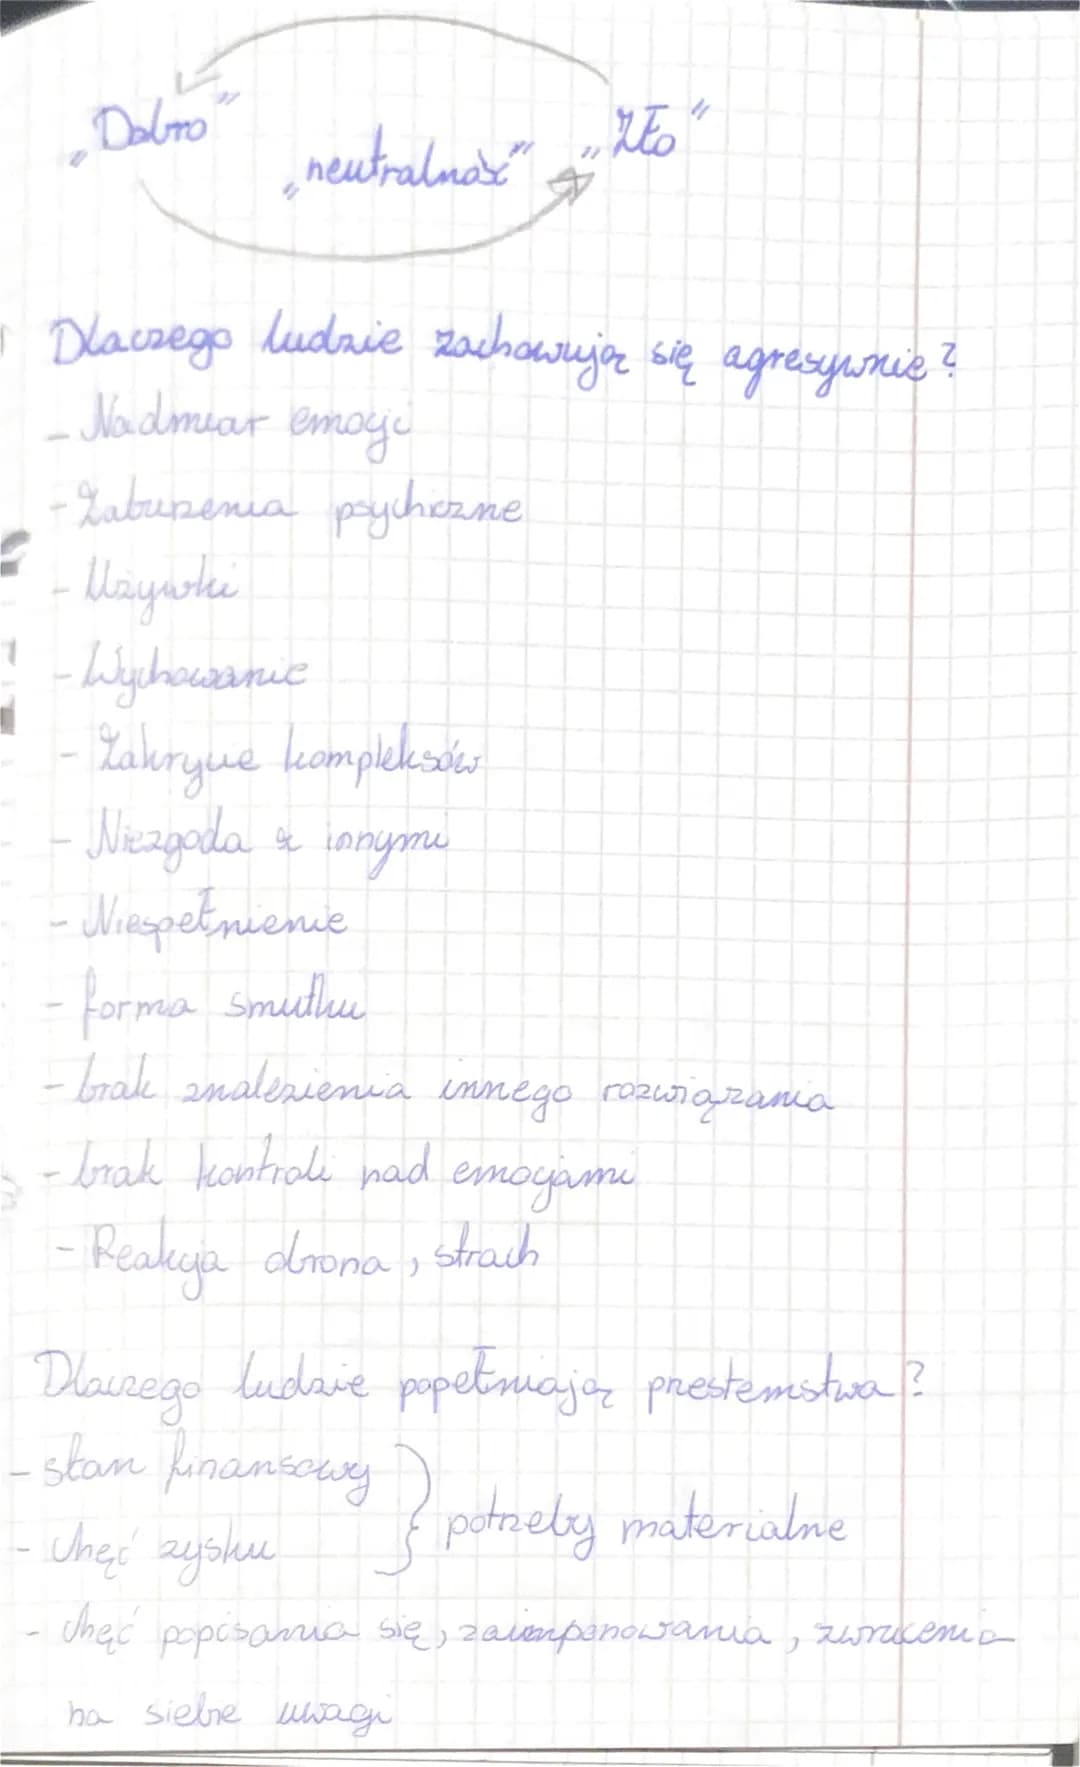 „Dobro" „neutralność" „Zło"
Dlaczego ludzie zachowują się agresywnie?
- Nadmiar emocji
- Zaburzenia psychiczne
- Używki
- Wychowanie
- Zakrycie kompleksów
- Niezgoda z innymi
- Niespełnienie
- forma smutku
- brak znalezienia innego rozwiązania
- brak kontroli nad emocjami
- Reakcja obrona, strach
Dlaczego ludzie popełniają przestemstwa?
- stan finansowy
- chęć zysku } potrzeby materialne
- chęć popisania się, zaimponowania, zwrócenia
na siebie uwagi